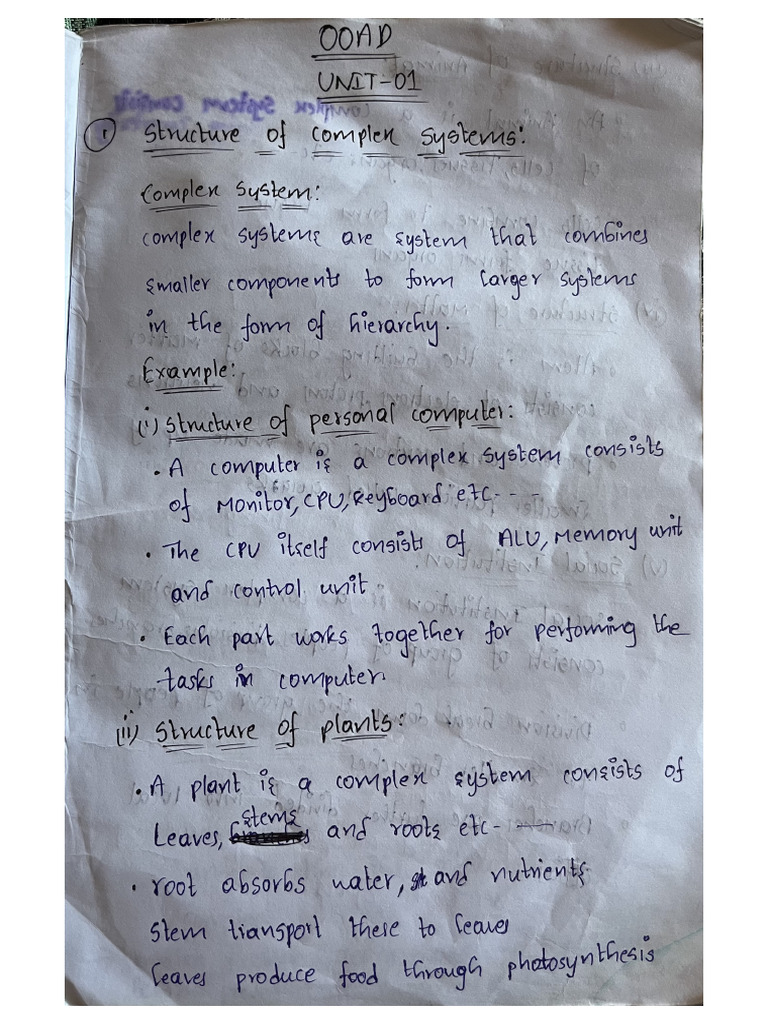 OOAD
UNIT-01
1 Structure of complex systems:
Complex System:
complex systems are system that combines
smaller components to form larger systems
in the form of hierarchy.
Example:
(i) Structure of personal computer:
• A computer is a complex system consists
of Monitor, CPU, Keyboard etc - - -
• The CPU itself consists of ALU, Memory unit
and control unit
• Each part works together for performing the
tasks in computer.
(ii) Structure of plants:
• A plant is a complex system consists of
Leaves, stems and roots etc -
• root absorbs water, and nutrients
stem transport these to leaves
leaves produce food through photosynthesis